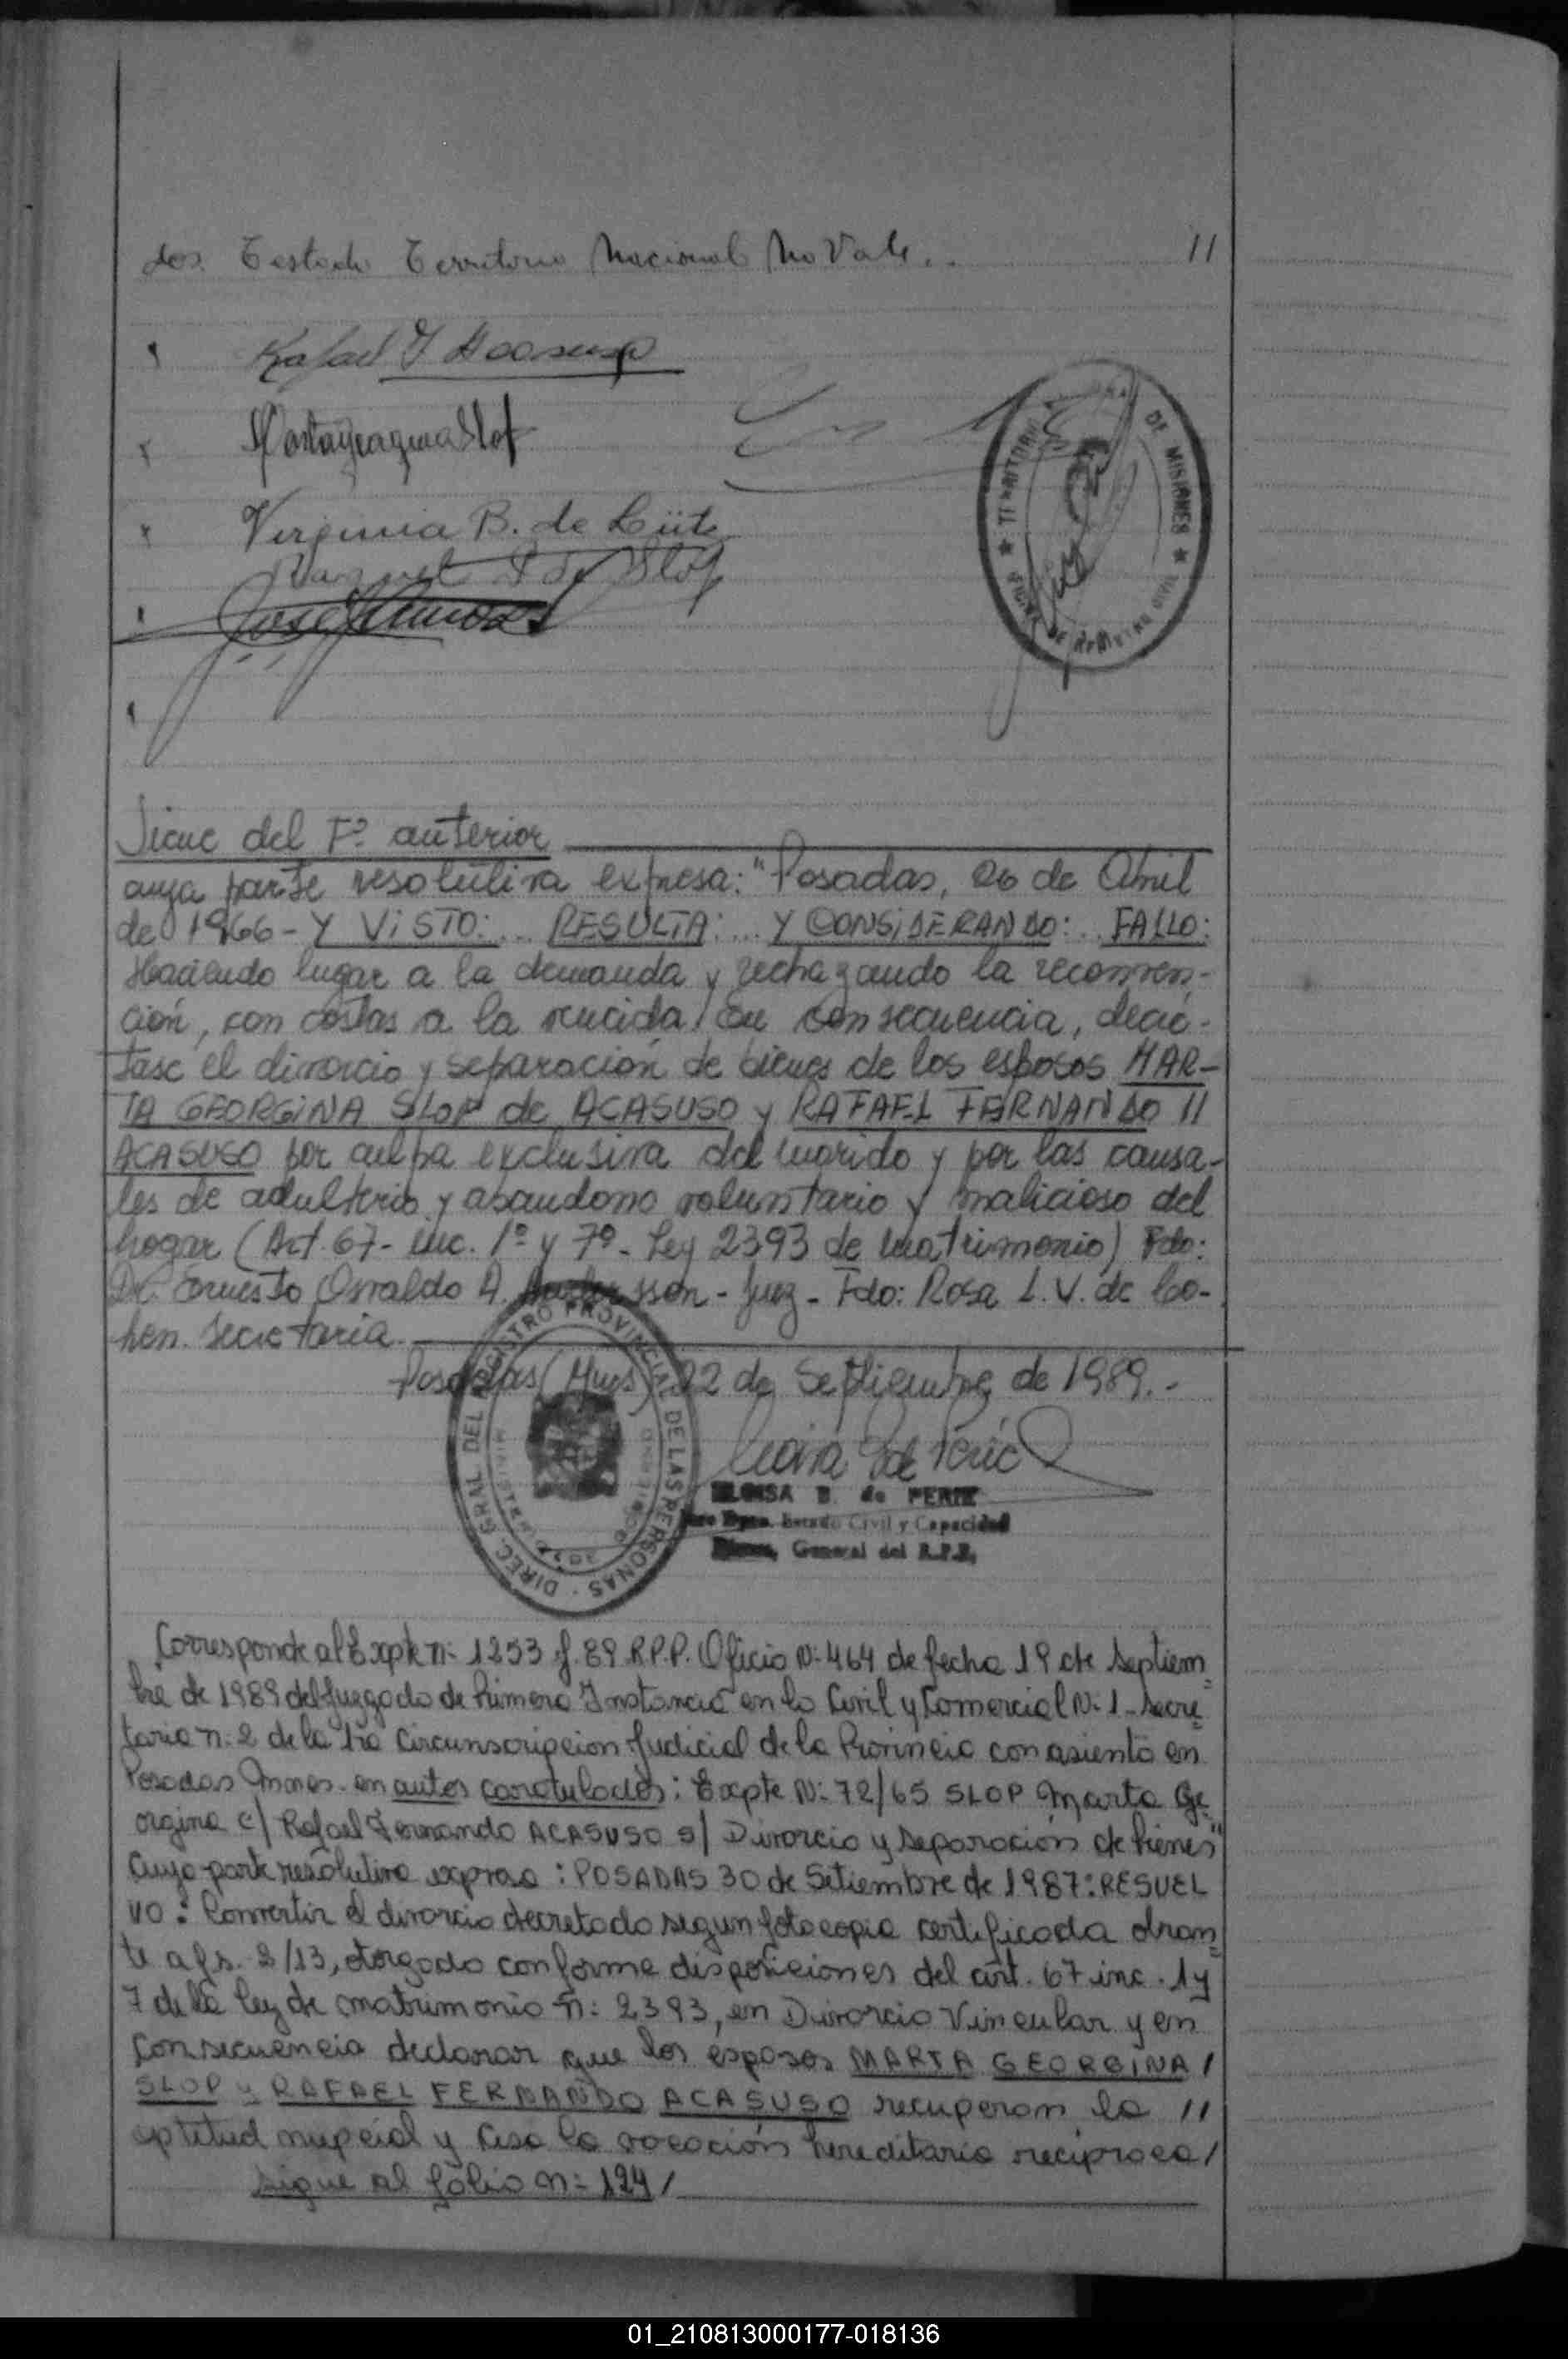 dos. Testado Territorio Nacional No Vale.. //
Rafael F Acasuso
Marta Georgina Slop
Virginia B. de Lüte
Raquel A de Slop
José
TERRITORIO DE MISIONES
OFICINA DE REGISTRO CIVIL
Sigue del Fº anterior
cuya parte resolutiva expresa: "Posadas, 26 de Abril
de 1966 - Y VISTO:... RESULTA:... Y CONSIDERANDO:.. FALLO:
Haciendo lugar a la demanda y rechazando la reconven-
ción, con costas a la vencida, en consecuencia, decré-
tase el divorcio y separación de bienes de los esposos MAR-
TA GEORGINA SLOP de ACASUSO y RAFAEL FERNANDO //
ACASUSO por culpa exclusiva del marido y por las causa-
les de adulterio y abandono voluntario y malicioso del
hogar (Art. 67- inc. 1º y 7º - Ley 2393 de matrimonio) Fdo:
Dr. Ernesto Osvaldo A. - Juez - Fdo: Rosa L. V. de Co-
hen. Secretaria
Posadas (Mnes) 22 de Septiembre de 1989.-
DIREC. GRAL. DEL REGISTRO PROVINCIAL DE LAS PERSONAS
ELOISA B. de PERIE
Estado Civil y Capacidad
General del R.P.P.
Corresponde al Expte n- 1253 f. 89 R.P.P. Oficio N: 464 de fecha 19 de Septiem
bre de 1989 del Juzgado de Primera Instancia en lo Civil y Comercial N: 1 - Secre
taria n: 2 de la 1ra Circunscripcion Judicial de la Provincia con asiento en
Posadas Mnes - en autos caratulados: Expte N: 72/65 SLOP Marta Ge
orgina c/ Rafael Fernando ACASUSO s/ Divorcio y separación de bienes"
Cuya parte resolutiva expresa: POSADAS 30 de Setiembre de 1987: RESUEL
VO: Convertir el divorcio decretado segun fotocopia certificada obran
te a fs. 2/13, otorgado conforme disposiciones del art. 67 inc. 1 y
7 de la ley de matrimonio n: 2393, en Divorcio Vincular y en
Consecuencia declarar que los esposos MARTA GEORGINA /
SLOP y RAFAEL FERNANDO ACASUSO recuperan la //
aptitud nupcial y cesa la vocación hereditaria reciproca /
sigue al folio n: 124 /
01_210813000177-018136